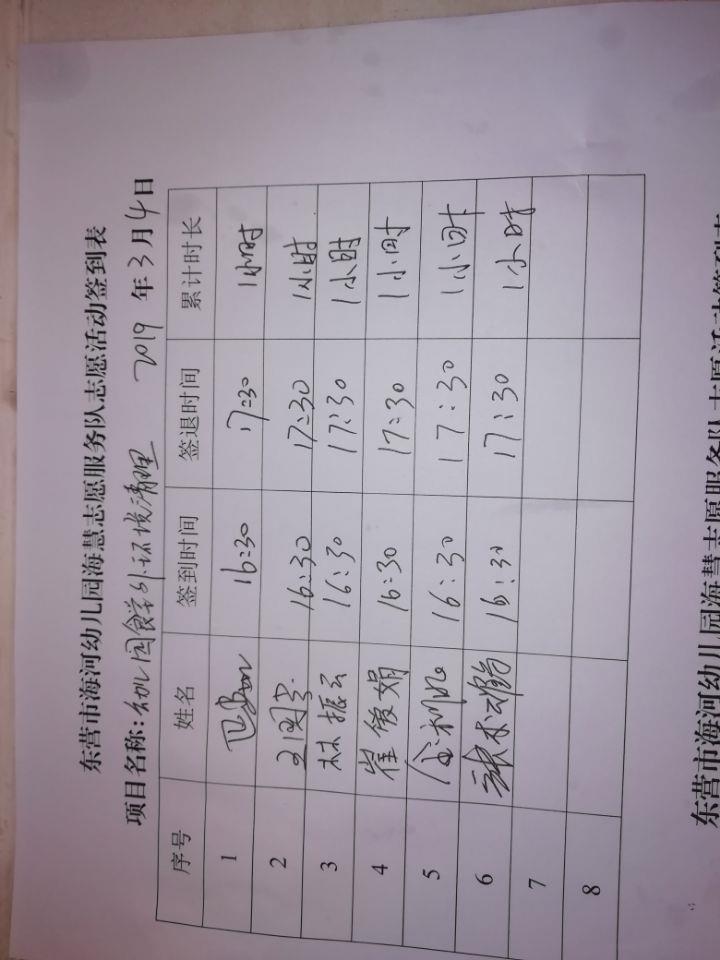 东营市海河幼儿园海慧志愿服务队志愿活动签到表
项目名称：幼儿园食堂外环境清理 2019 年 3 月 4 日
序号 姓名 签到时间 签退时间 累计时长
1 16:30 17:30 1小时
2 16:30 17:30 1小时
3 林振云 16:30 17:30 1小时
4 崔俊娟 16:30 17:30 1小时
5 16:30 17:30 1小时
6 16:30 17:30 1小时
7
8
东营市海河幼儿园海慧志愿服务队志愿活动签到表